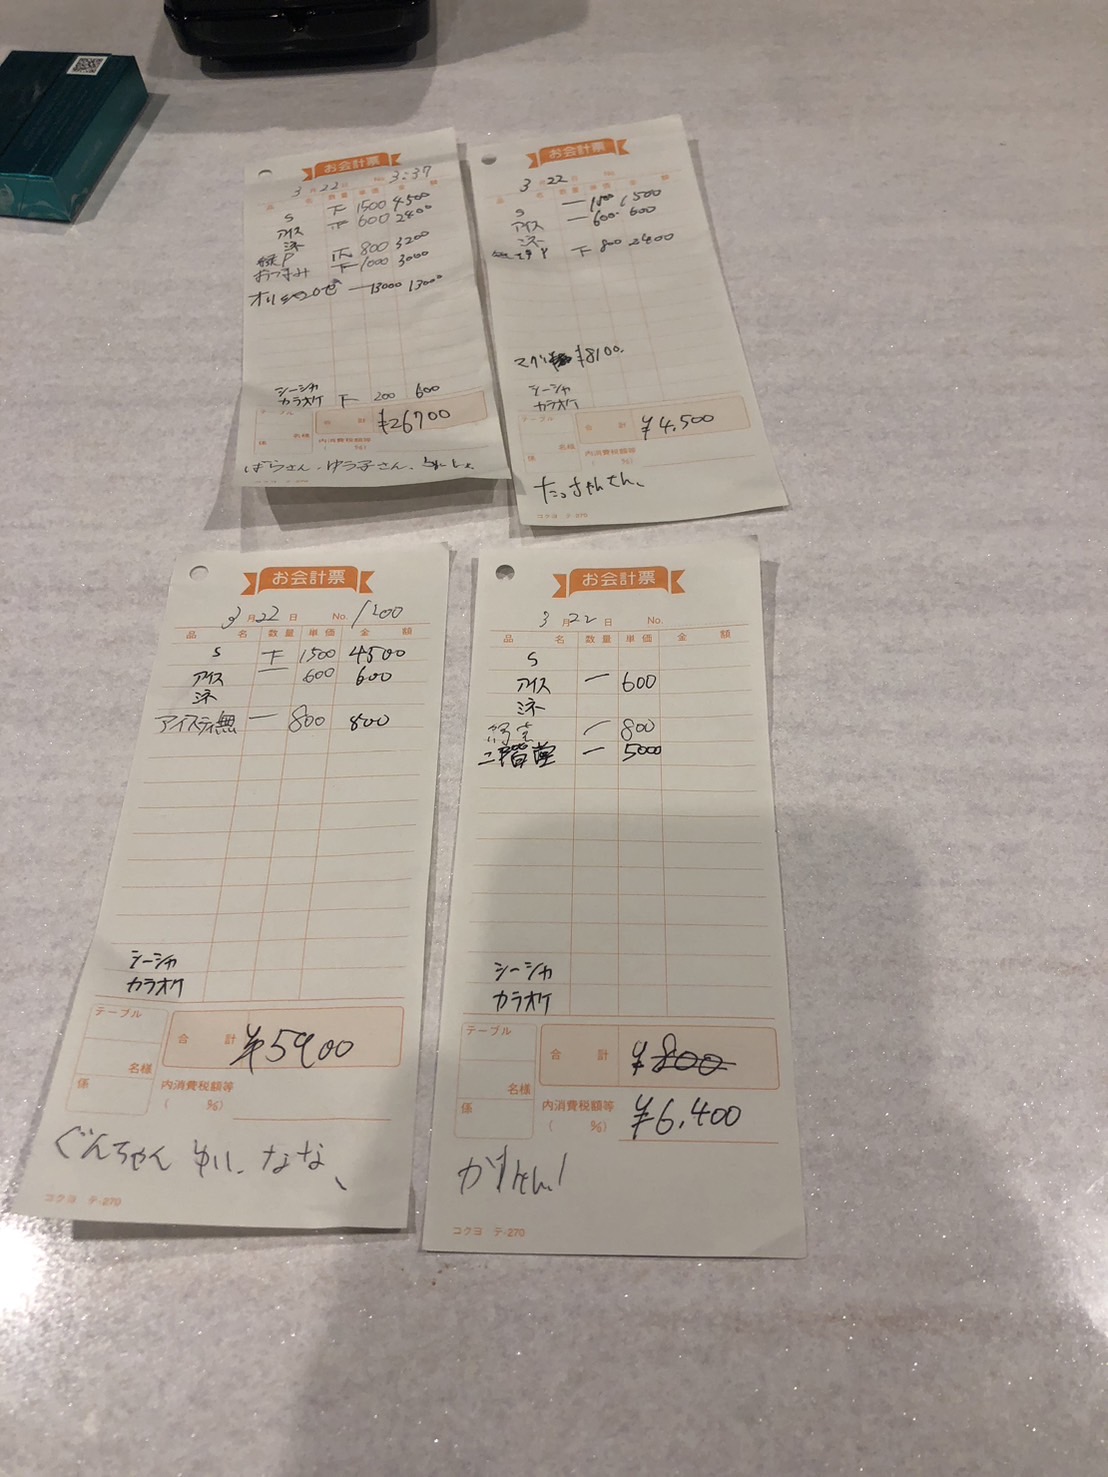 お会計票
3月22日 No. 3:37
品名 数量 単価 金額
S 下 1500 4500
アイス 600 2400
ミネ
緑P 800 3200
おつまみ 下 1000 3000
一 13000 13000
シーシャ
カラオケ 下 200 600
テーブル
合計 ¥26700
名様
係
内消費税額等
( %)
ばらさん、ゆう子さん、
コクヨ テ-270
お会計票
3月22日 No.
品名 数量 単価 金額
S 一 1500 1500
アイス 一 600 600
ミネ
下 800 2400
¥8100.
シーシャ
カラオケ
テーブル
合計 ¥4,500
名様
係
内消費税額等
( %)
たっちゃんさん、
コクヨ テ-270
お会計票
3月22日 No. 1200
品名 数量 単価 金額
S 下 1500 4500
アイス 一 600 600
ミネ
アイスティ無 一 800 800
シーシャ
カラオケ
テーブル
合計 ¥5900
名様
係
内消費税額等
( %)
ぐんちゃん ゆい、なな、
コクヨ テ-270
お会計票
3月22日 No.
品名 数量 単価 金額
S
アイス 一 600
ミネ
一 800
二階堂 一 5000
シーシャ
カラオケ
テーブル
合計 ¥800
名様
係
内消費税額等
( %)
¥6,400
コクヨ テ-270